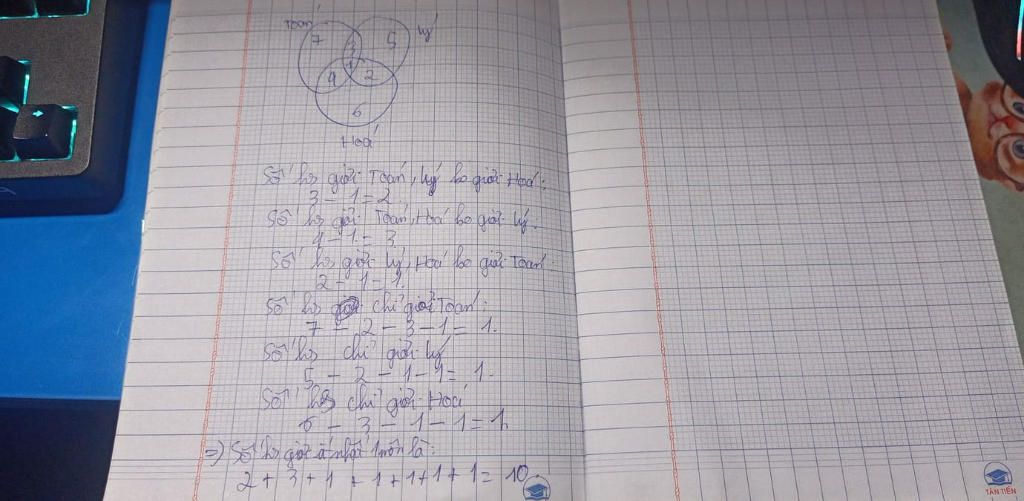 Toán
Lý
7
3
5
1
4
2
6
Hoá
Số hs giỏi Toán, Lý ko giỏi Hoá:
3 - 1 = 2
Số hs giỏi Toán, Hoá ko giỏi Lý:
4 - 1 = 3
Số hs giỏi Lý, Hoá ko giỏi Toán
2 - 1 = 1.
Số hs chỉ giỏi Toán:
7 - 2 - 3 - 1 = 1.
Số hs chỉ giỏi Lý
5 - 2 - 1 - 1 = 1.
Số hs chỉ giỏi Hoá
6 - 3 - 1 - 1 = 1.
=> Số hs giỏi ít nhất 1 môn là:
2 + 3 + 1 + 1 + 1 + 1 + 1 = 10
TÂN TIẾN